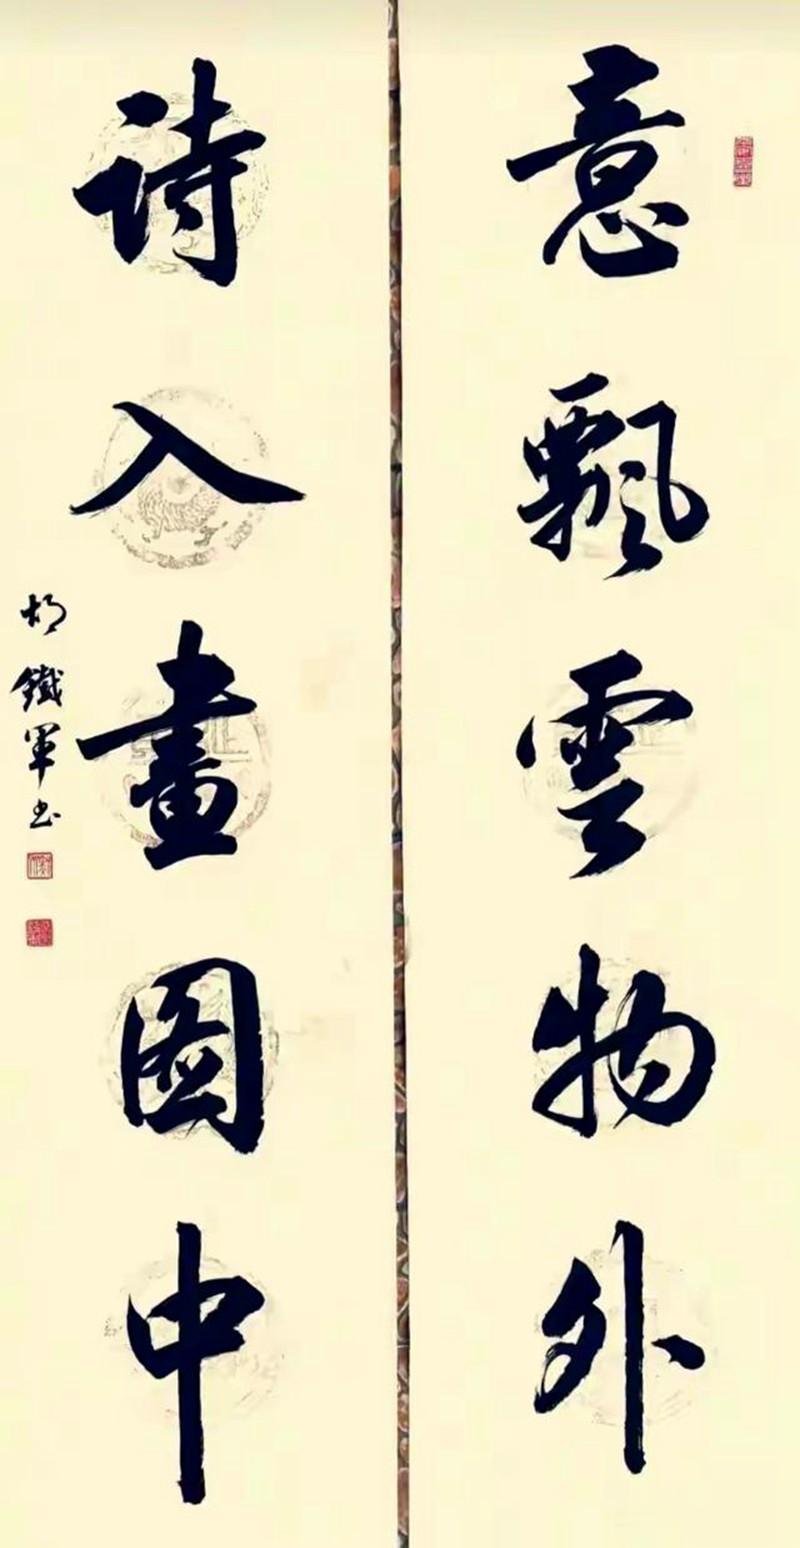 意飘雲物外
诗入畫圖中
胡鐵軍书